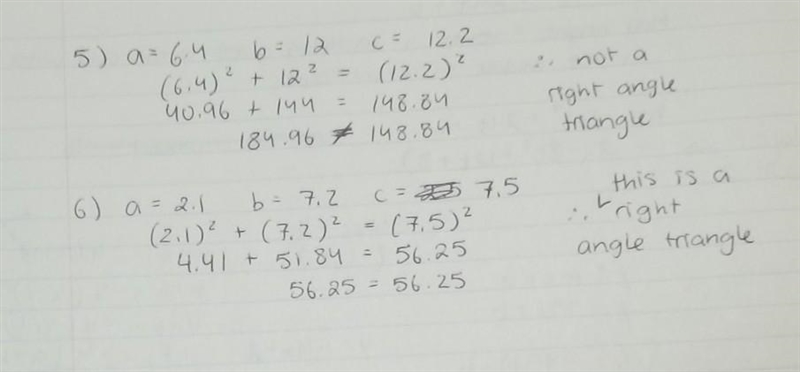 5) a = 6.4 b = 12 c = 12.2
(6.4)² + 12² = (12.2)²
40.96 + 144 = 148.84
184.96 ≠ 148.84
∴ not a
right angle
triangle
6) a = 2.1 b = 7.2 c = 7.5
(2.1)² + (7.2)² = (7.5)²
4.41 + 51.84 = 56.25
56.25 = 56.25
this is a
∴ right
angle triangle